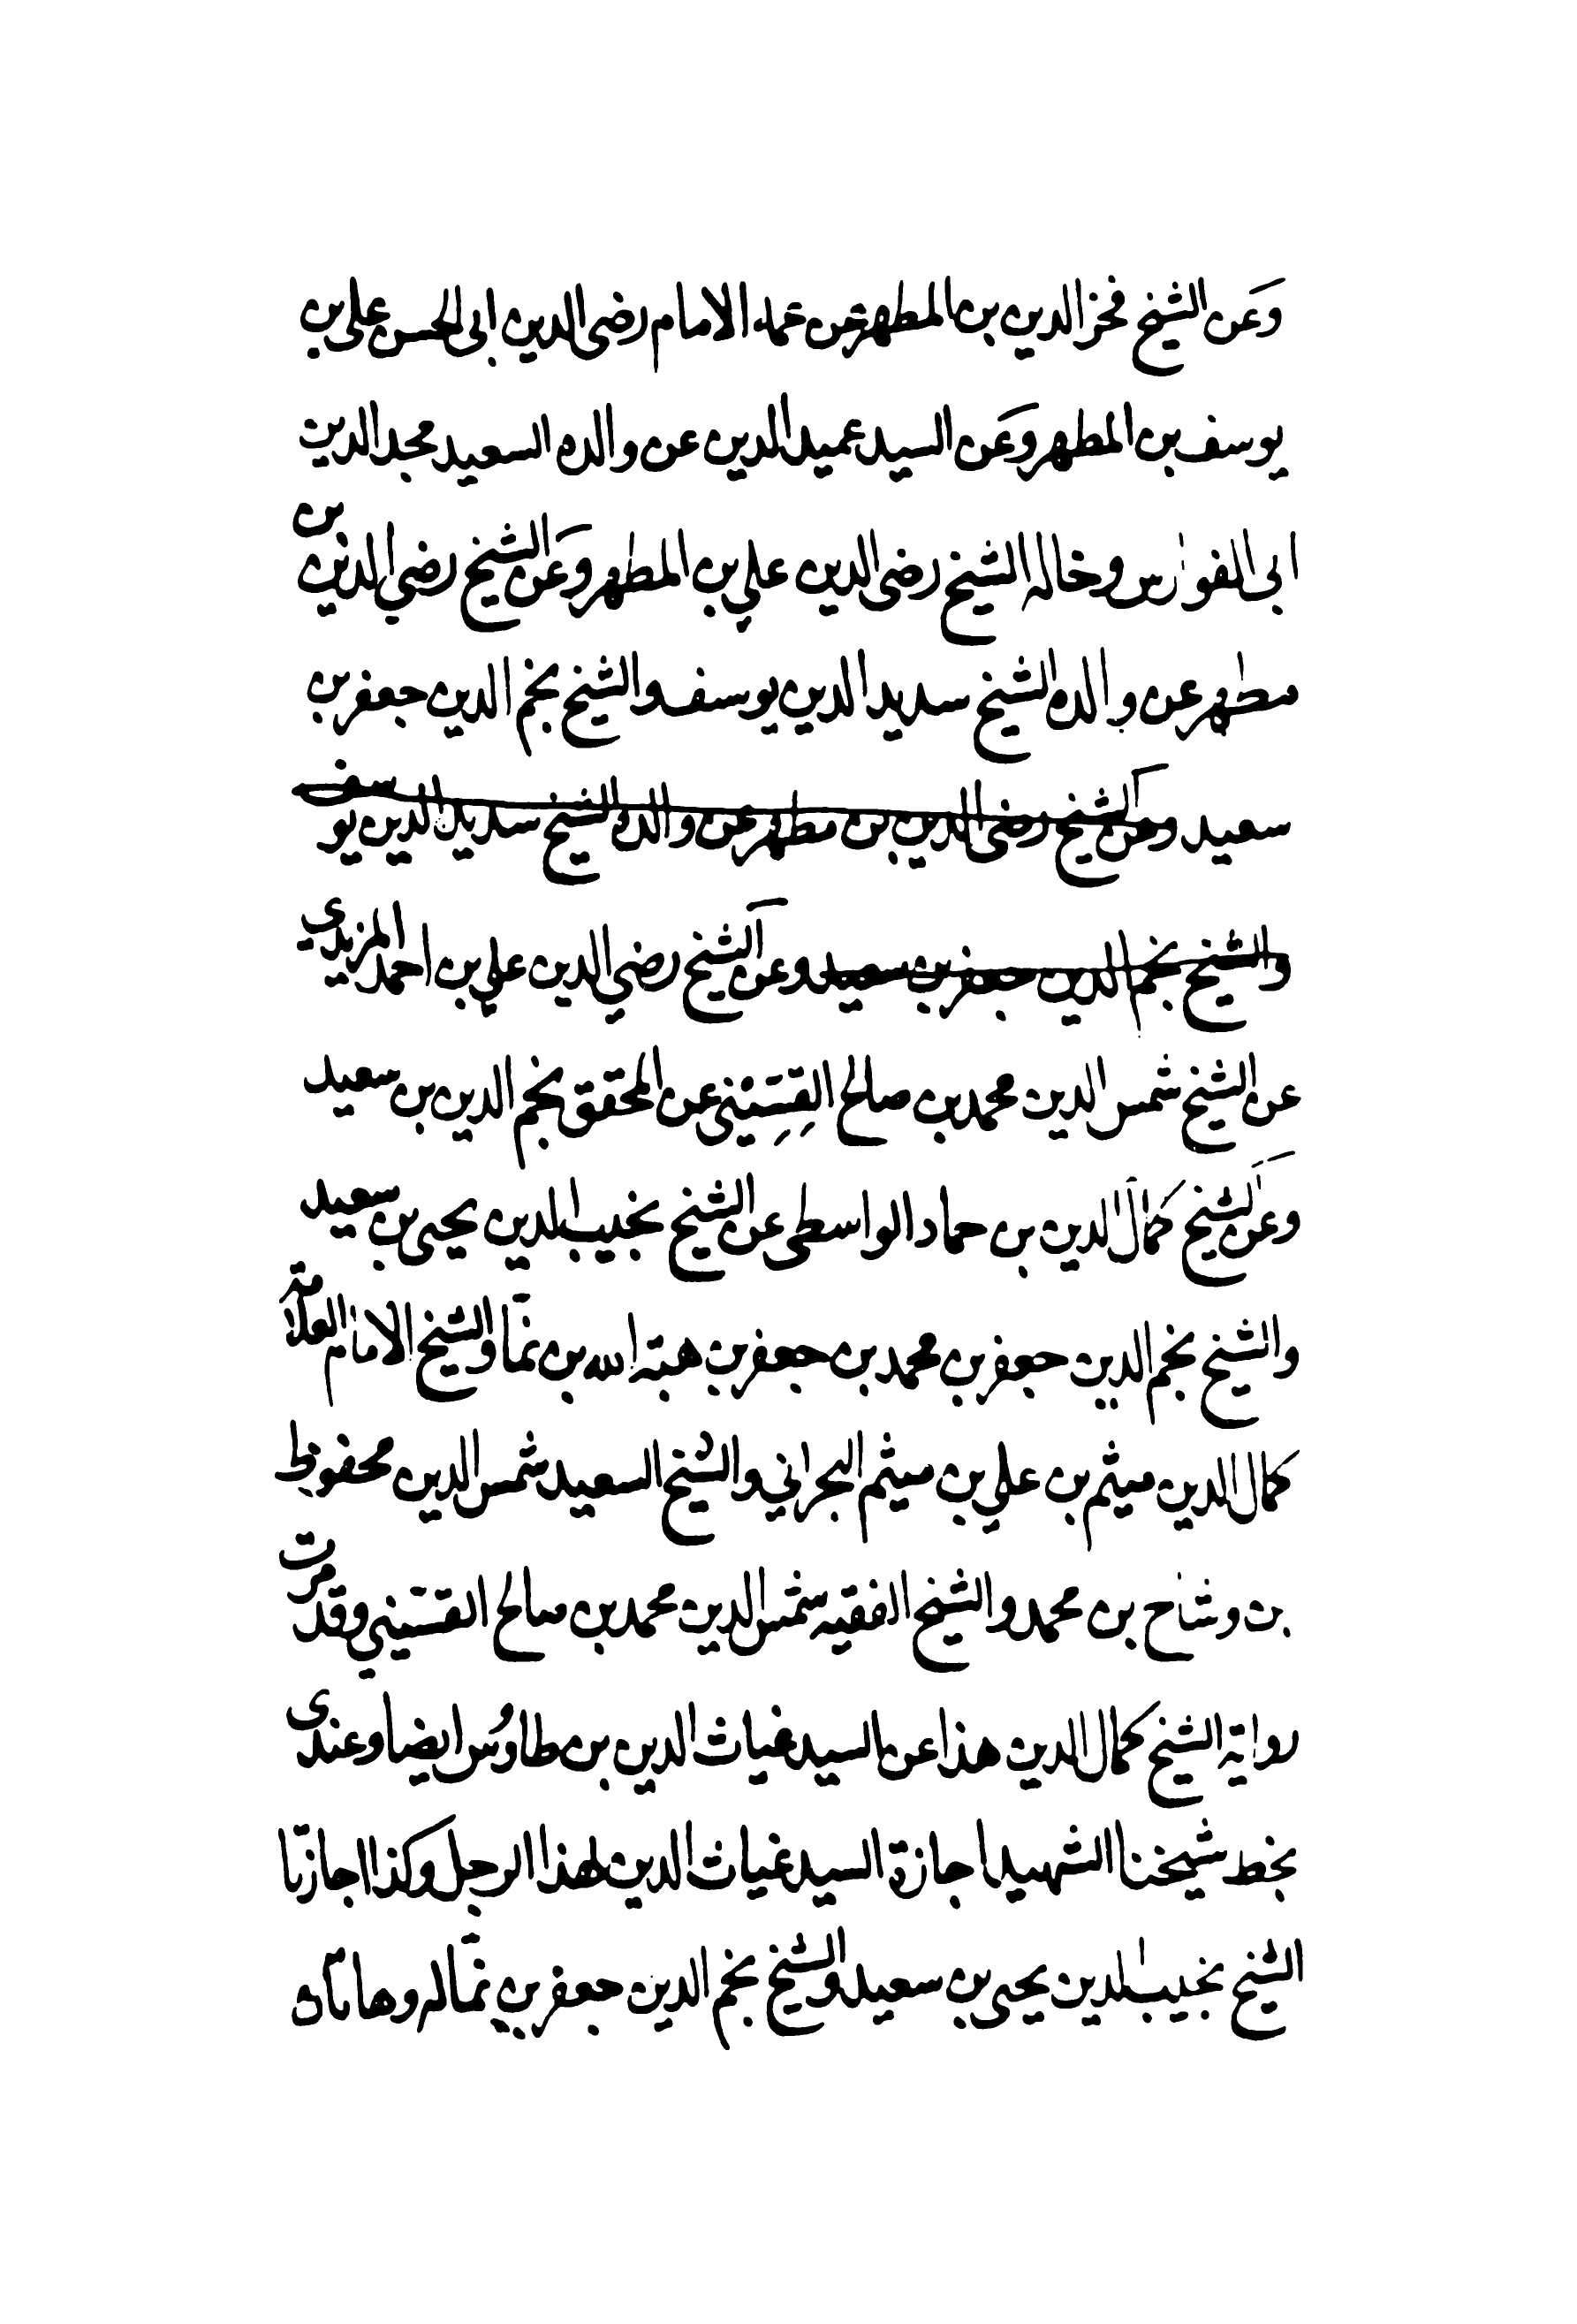 وعن الشيخ فخر الدين بن المطهر عن عمه الامام رضى الدين ابى الحسن على بن
يوسف بن المطهر وعن السيد عميد الدين عن والده السعيد مجد الدين
ابى الفوارس وخاله الشيخ رضى الدين علي بن المطهر وعن الشيخ رضي الدين بن
مطهر عن والده الشيخ سديد الدين يوسف والشيخ نجم الدين جعفر بن
سعيد وعن الشيخ رضى الدين بن مطهر عن والده الشيخ سديد الدين يوسف
والشيخ نجم الدين جعفر بن سعيد وعن الشيخ رضي الدين علي بن احمد المزيدي
عن الشيخ شمس الدين محمد بن صالح القِسِّيني عن المحقق نجم الدين بن سعيد
وعن الشيخ كمال الدين بن حماد الواسطى عن الشيخ نجيب الدين يحيى بن سعيد
والشيخ نجم الدين جعفر بن محمد بن جعفر بن هبة الله بن نما والشيخ الامام العلامة
كمال الدين ميثم بن علي بن ميثم البحراني والشيخ السعيد شمس الدين محفوظ
بن وشاح بن محمد والشيخ الفقيه شمس الدين محمد بن صالح القسيني وقد مرت
رواية الشيخ كمال الدين هذا عن السيد غياث الدين بن طاوُس ايضا وعندى
بخط شيخنا الشهيد اجازة السيد غياث الدين لهذا الرجل وكذا اجازتا
الشيخ نجيب الدين يحيى بن سعيد والشيخ نجم الدين جعفر بن نما له وهاتان